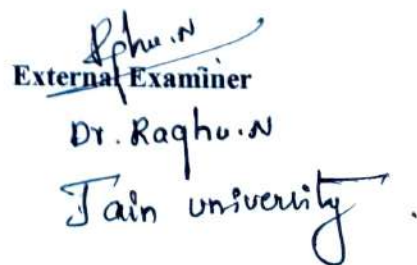 Rghu.N
External Examiner
Dr. Raghu.N
Jain university.